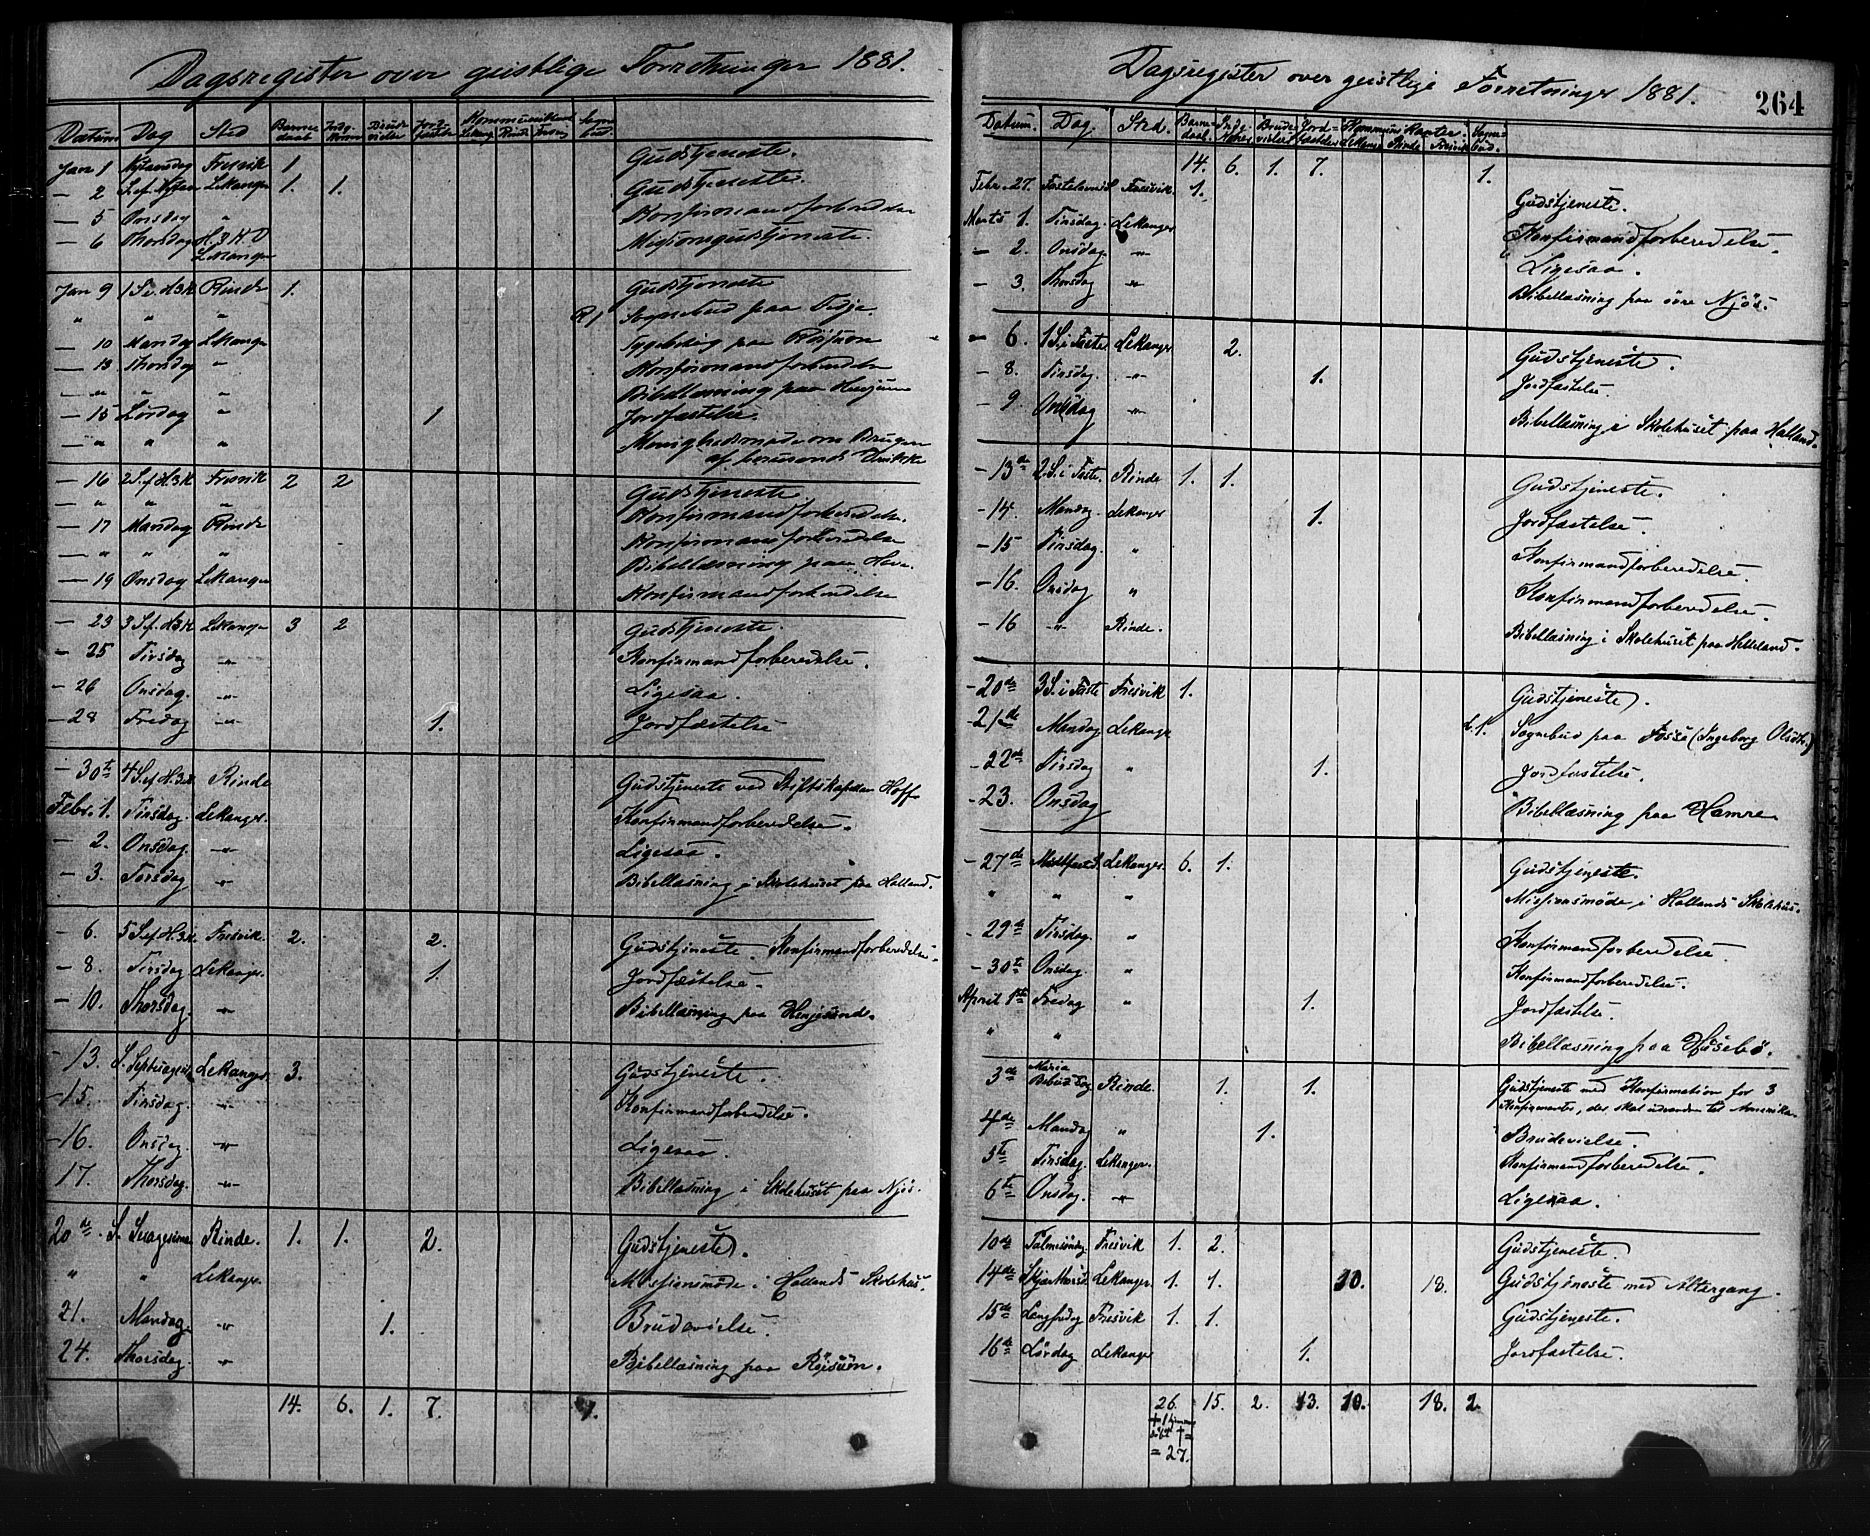 Dagsregister over geistlige Forretninger 1881.
Datum Dag Sted Barnedaab Indg. Konen Brudevielse Jordfæstelse Kommunikanter Lekang. Rinde Fresv. Sognebud.
Jan 1 Nytaarsdag Fresvik 1 Gudstjeneste.
— 2 S. ef. Nytaar Lekanger 1. 1. Gudstjeneste.
— 5 Onsdag " Konfirmandforbredelse
— 6 Thorsdag H. 3 K. D Lekanger Missionsgudstjeneste.
Jan 9 1 S. e. H3K Rinde 1. Gudstjeneste
" " " R 1 Sognebud paa Tidje.
— 10 Mandag Lekanger Sygebesøg paa Røisum
— 13 Thorsdag " Konfirmandforberedelse
— " " " Bibellæsning paa Henjum
— 15 Lørdag " 1 Jordfæstelse.
— " " " Menighedsmøde om Brugen
af berusende Drikke
— 16 2 S. ef H3K Fresvik 2 2 Gudstjeneste
— " " " Konfirmandforberedelse.
— 17 Mandag Rinde Konfirmandforberedelse
— " " " Bibellæsning paa Hove.
— 19 Onsdag Lekanger Konfirmandforberedelse
— 23 3 S. ef. H3K Lekanger 3 2 Gudstjeneste.
— 25 Tirsdag -"- Konfirmandforberedelse.
— 26 Onsdag. -"- Ligesaa.
— 28 Fredag -"- 1. Jordfæstelse
— 30te 4 S. ef H. 3K Rinde Gudstjeneste ved Stiftskapellan Hoff
Febr. 1. Tirsdag. Lekanger. Konfirmandforberedelse.
— 2. Onsdag. -"- Ligesaa.
— 3. Torsdag -"- Bibellæsning i Skolehuset paa Halland.
— 6. 5 S. ef H3K. Fresvik. 2. 2. Gudstjeneste. Konfirmandforberedelse.
— 8. Tirsdag Lekanger. 1. Jordfæstelse.
— 10. Thorsdag. -"- Bibellæsning paa Henjesand.
— 13. S. Septuagesima Lekanger. 3. Gudstjeneste.
— 15. Tirsdag. -"- Konfirmandforberedelse.
— 16. Onsdag. -"- Ligesaa.
17. Thorsdag. -"- Bibellæsning i Skolehuset paa Njøs.
20de S. Sexagesima Rinde. 1. 1. 2. Gudstjeneste.
" " Lekanger Missionsmøde i Hallands Skolehus.
21. Mandag -"- 1. Brudevielse.
24. Thorsdag. -"- Bibellæsning paa Røjsum.
14. 6. 1. 7. 1.
Dagsregister over geistlige Forretninger 1881.
264
Datum. Dag. Sted. Barnedaab. Indg. Koner Brudevielser Jordfæstelser Kommunikanter. Lekanger Rinde Fresvik Sognebud.
14. 6. 1. 7. 1.
Febr. 27. Fastelavns S. Fresvik. 1. Gudstjeneste.
Marts 1. Tirsdag. Lekanger Konfirmandforberedelse.
— 2. Onsdag. -"- Ligesaa.
— 3. Thorsdag -"- Bibellæsning paa øvre Njøs.
— 6. 1 S. i Faste. Lekanger 2. Gudstjeneste.
— 8. Tirsdag. -"- 1. Jordfæstelse.
— 9. Onsdag -"- Bibellæsning i Skolehuset paa Halland.
— 13de 2 S. i Faste. Rinde 1. 1. Gudstjeneste.
— 14 Mandag. Lekanger 1. Jordfæstelse.
— 15 Tirsdag. " Konfirmandforberedelse.
— 16. Onsdag " Konfirmandforberedelse.
— 16 -"- Rinde. Bibellæsning i Skolehuset paa Helleland.
— 20de 3 S. i Faste Fresvik 1. Gudstjeneste.
— 21de Mandag Lekanger L. 1. Sognebud paa Fosse (Ingeborg Olsdtr.)
— 22de Tirsdag " 1. Jordfæstelse.
— 23. Onsdag Bibellæsning paa Hamre
— 27de Midtfaste S. Lekanger. 6. 1. Gudstjeneste.
" " " Missionsmøde i Hallands Skolehus.
— 29de Tirsdag. " Konfirmandforberedelse.
— 30te Onsdag. " Konfirmandforberedelse.
April 1ste Fredag " 1. Jordfæstelse.
" " Bibellæsning paa Husebø.
3de Maria Beb. Dag Rinde. 1. 1. Gudstjeneste med Konfirmation for 3
Konfirmanter, der skal udvandre til Amerika.
4de Mandag " 1. Brudevielse.
5te Tirsdag. Lekanger. Konfirmandforberedelse.
6te Onsdag. -"- Ligesaa.
10de Palmesøndag. Fresvik 1. 2. Gudstjeneste.
14de Skjærthorsd. Lekanger. 1. 1. 10. 18. Gudstjeneste med Altergang.
15de Langfredag Fresvik 1. 1. Gudstjeneste.
16de Lørdag Lekanger 1. Jordfæstelse.
26. 15. 2. 13. 10. 18. 2.
+ 1 hjemmedøbt † =
= 27.